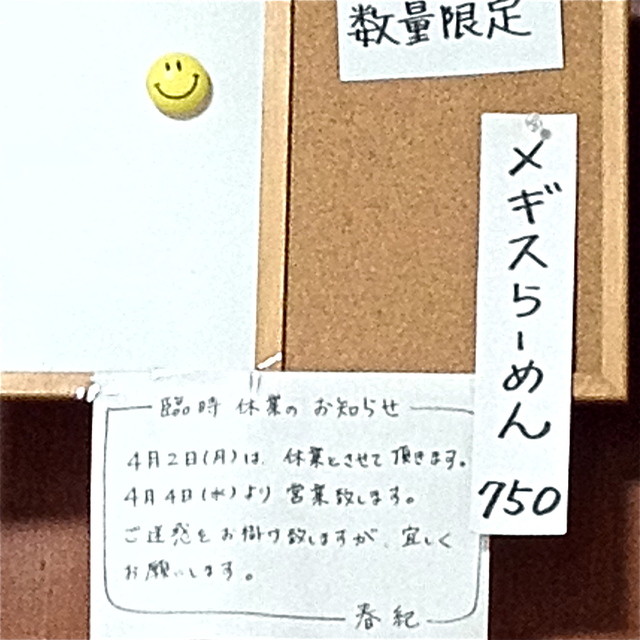 数量限定
メギスらーめん
750
臨時休業のお知らせ
4月2日(月)は、休業とさせて頂きます。
4月4日(水)より営業致します。
ご迷惑をお掛け致しますが、宜しく
お願いします。
春紀